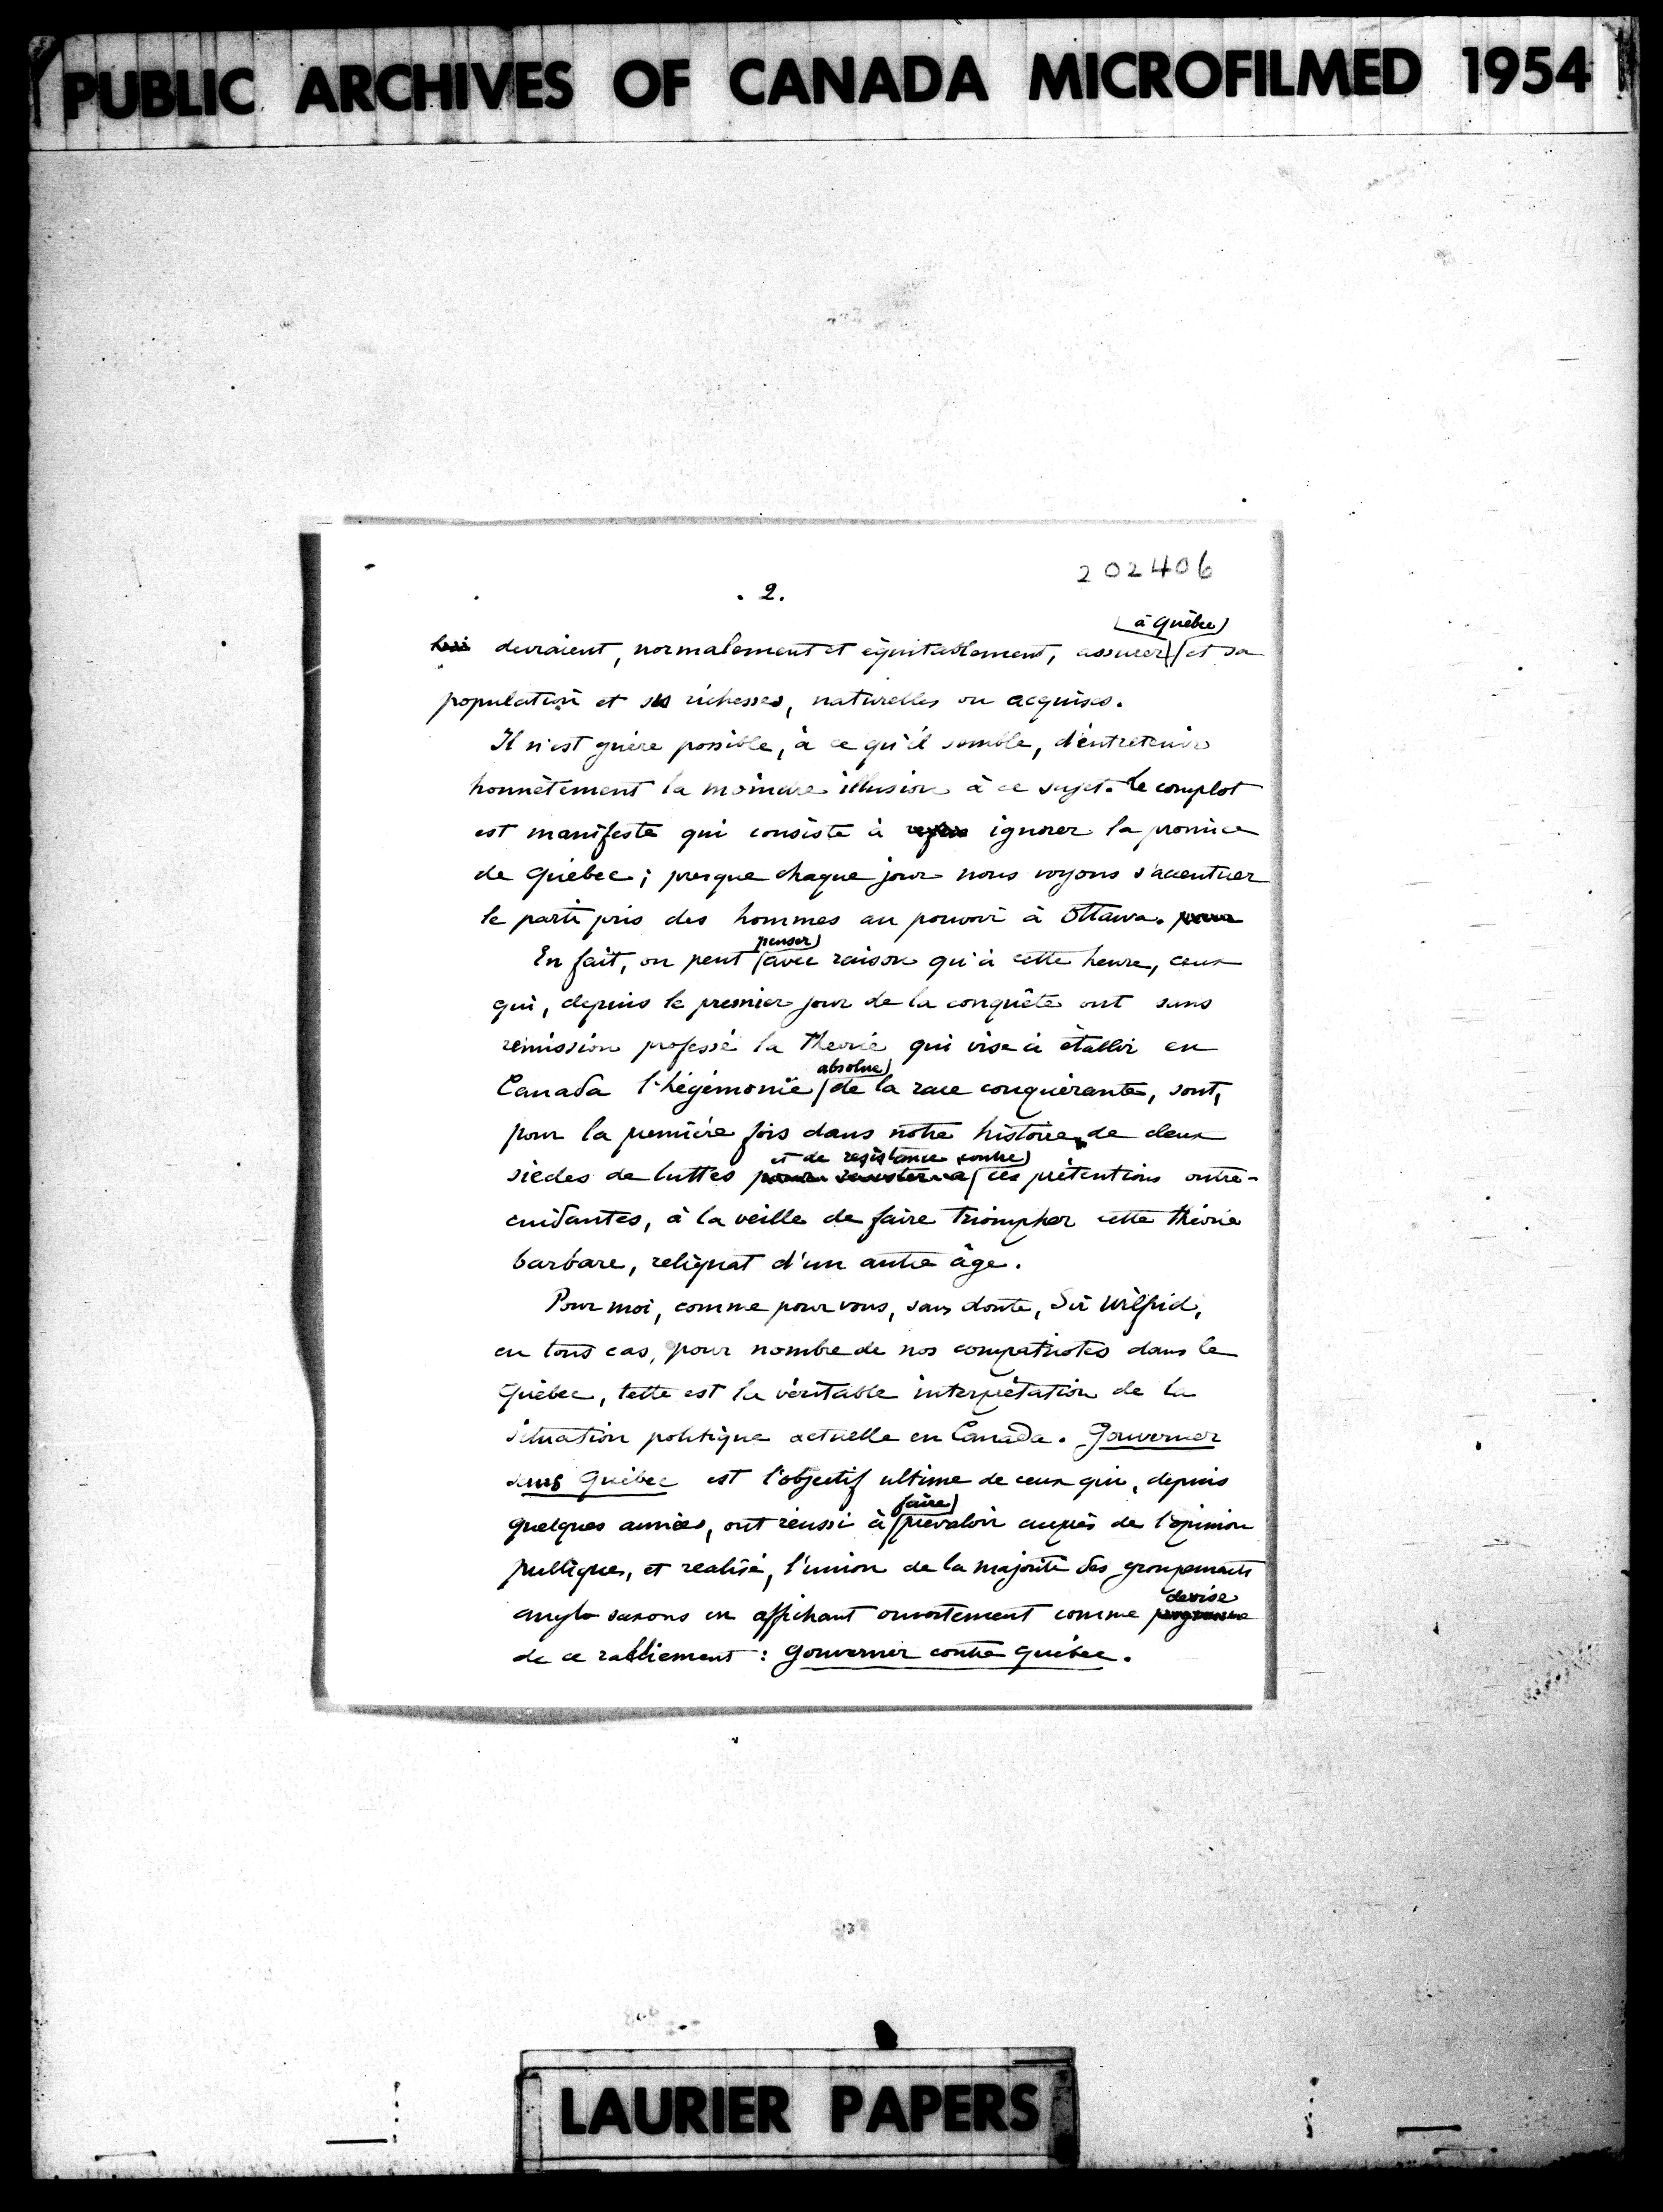 PUBLIC ARCHIVES OF CANADA MICROFILMED 1954
202406
. 2.
à Québec
lui devraient, normalement et équitablement, assurer et sa
population et ses richesses, naturelles ou acquises.
Il n'est guère possible, à ce qu'il semble, d'entretenir
honnêtement la moindre illusion à ce sujet. Le complot
est manifeste qui consiste à ignorer la province
de Québec; presque chaque jour nous voyons s'accentuer
le parti pris des hommes au pouvoir à Ottawa. pour
penser
En fait, on peut avec raison qu'à cette heure, ceux
qui, depuis le premier jour de la conquête ont sans
rémission professé la théorie qui vise à établir en
absolue
Canada l'hégémonie de la race conquérante, sont,
pour la première fois dans notre histoire de deux
et de résistance contre
siècles de luttes pour resister a ces prétentions outre-
cuidantes, à la veille de faire triompher cette théorie
barbare, reliquat d'un autre âge.
Pour moi, comme pour vous, sans doute, Sir Wilfrid,
en tous cas, pour nombre de nos compatriotes dans le
Québec, telle est la véritable interprétation de la
situation politique actuelle en Canada. Gouverner
sans Québec est l'objectif ultime de ceux qui, depuis
faire
quelques années, ont réussi à prévaloir auprès de l'opinion
publique, et réalisé, l'union de la majorité des groupements
devise
anglo saxons en affichant ouvertement comme programme
de ce ralliement : Gouverner contre Québec.
LAURIER PAPERS